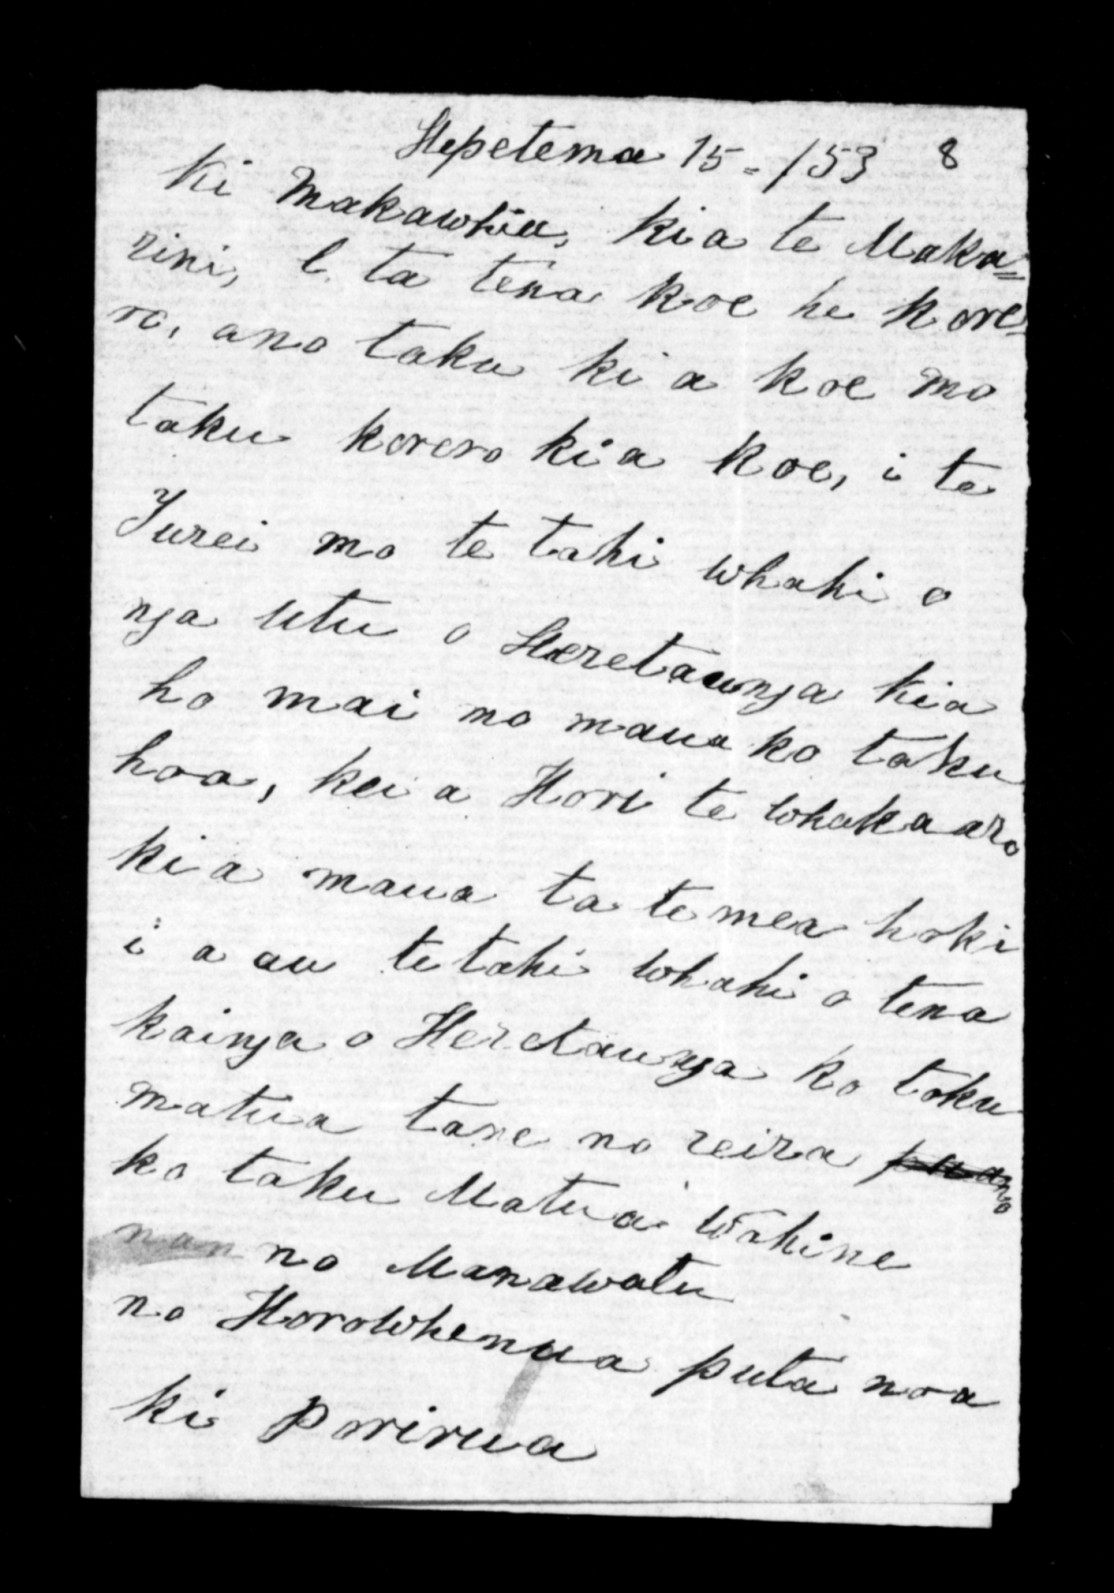 Hepetema 15 - /53 8
Ki Makawhiu, kia te Maka=
rini, E ta tena koe he kore=
ro, ano taku ki a koe mo
taku korero kia koe, i te
Turei mo te tahi whahi o
nga Utu o Heretaunga kia
ho mai mo maua ko taku
hoa, kei a Hori te whakaaro
kia maua ta te mea hoki
i a au te tahi whahi o tena
kainga o Heretaunga ko toku
matua tane no reira
ko taku Matua Wahine
no Manawatu
no Horowhenua puta noa
ki Porirua